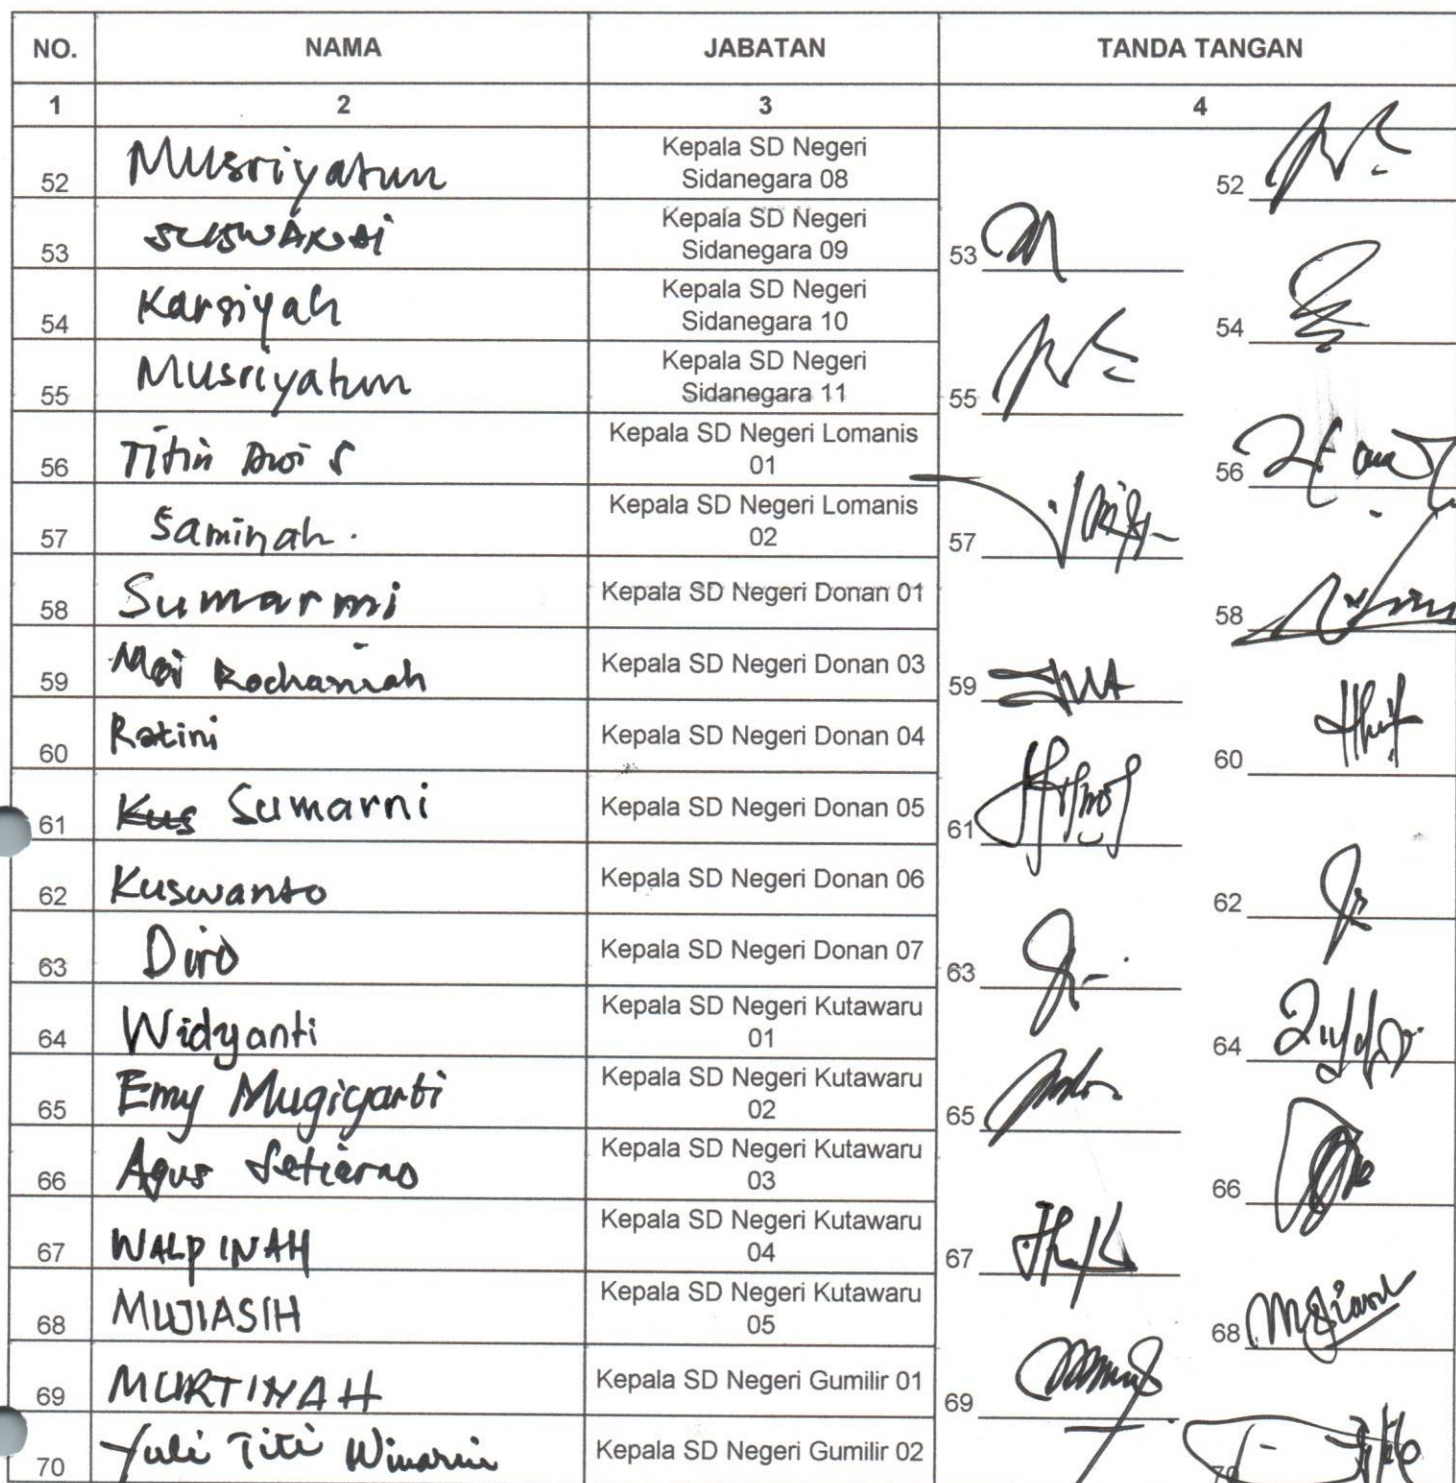 NO. NAMA JABATAN TANDA TANGAN
1 2 3 4
52 Musriyatun Kepala SD Negeri Sidanegara 08 52
53 SUSWARDI Kepala SD Negeri Sidanegara 09 53
54 Karsiyah Kepala SD Negeri Sidanegara 10 54
55 Musriyatun Kepala SD Negeri Sidanegara 11 55
56 Titin Dwi S Kepala SD Negeri Lomanis 01 56
57 Saminah. Kepala SD Negeri Lomanis 02 57
58 Sumarmi Kepala SD Negeri Donan 01 58
59 Rochaniah Kepala SD Negeri Donan 03 59
60 Ratini Kepala SD Negeri Donan 04 60
61 Kus Sumarni Kepala SD Negeri Donan 05 61
62 Kuswanto Kepala SD Negeri Donan 06 62
63 Diro Kepala SD Negeri Donan 07 63
64 Widyanti Kepala SD Negeri Kutawaru 01 64
65 Emy Mugiyarti Kepala SD Negeri Kutawaru 02 65
66 Agus Setiarno Kepala SD Negeri Kutawaru 03 66
67 WALPINAH Kepala SD Negeri Kutawaru 04 67
68 MUJIASIH Kepala SD Negeri Kutawaru 05 68
69 MURTINAH Kepala SD Negeri Gumilir 01 69
70 Yuli Titi Winarni Kepala SD Negeri Gumilir 02 70